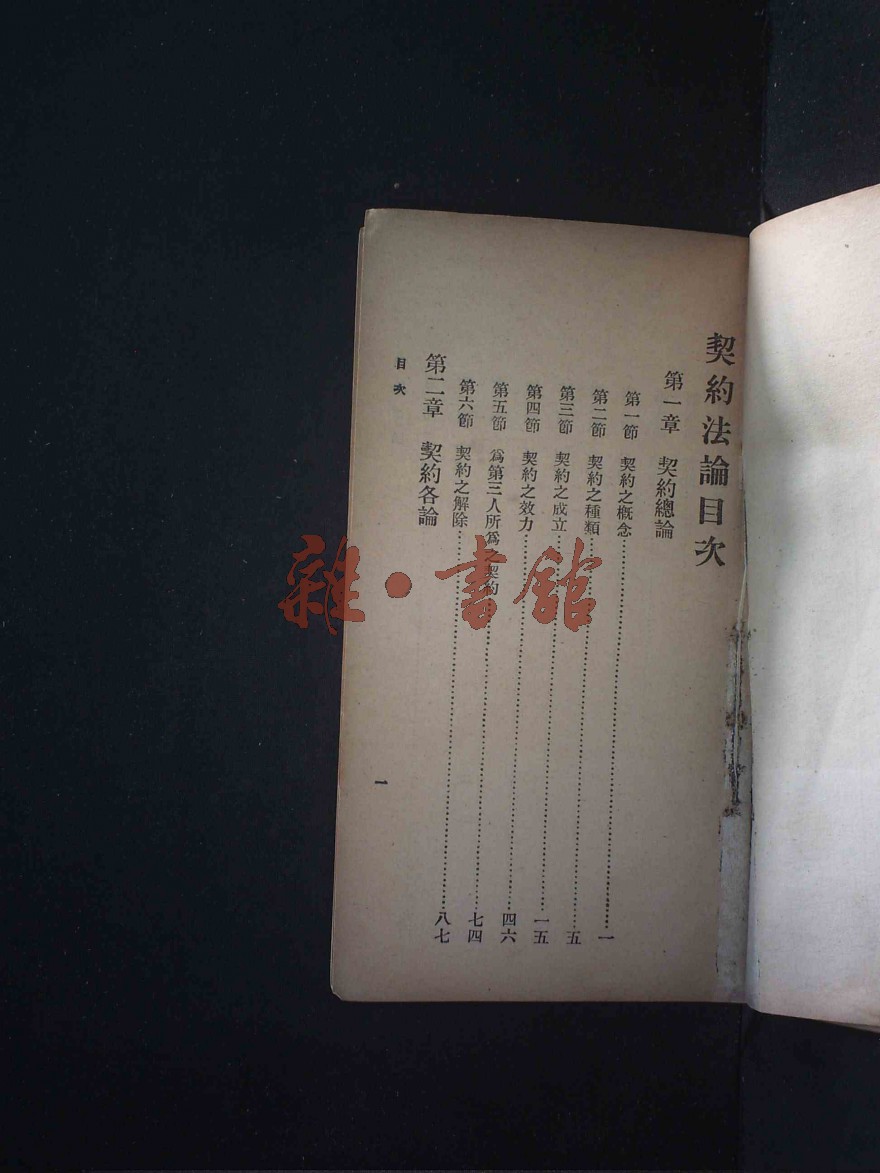 契約法論目次
第一章 契約總論
第一節 契約之概念……一
第二節 契約之種類……五
第三節 契約之成立……一五
第四節 契約之效力……四六
第五節 爲第三人所爲之契約……七四
第六節 契約之解除……八七
第二章 契約各論
目次
一
雜·書館